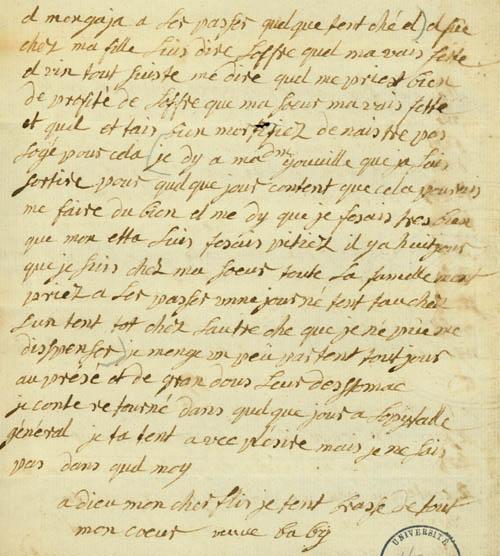 el mengaja a Les passer quelque tent ché el) el fue
chez ma fille Luis dire Loffre quel ma vais fette
el vin tout suiste me dire quel me priest bien
de profité de Loffre que ma Soeur ma vais fette
et quil et tais bien mortifiez de naistre pas
logé pour cela (je dy a ma dme youville que je fais
sortire pour quelque jour content que cela pourais
me faire du bien el me dy que je fesais tres bien
que mon etta Luis fesais pitiez il y a huit jour
que je suis chez ma soeur toute La famille mont
priez a Les passer unne journé tent tau chez
Lun tent tot chez Lautre che que je ne puis me
dispenser) je menge un peu mas tent toutjour
au présé et de gran dous Leur desstomac
je conte retourné dans quelque jour a Lopitalle
général je ta tent avec plésire mais je ne sais
pas dans quel moy
a dieu mon cher fils je tent brasse de tout
mon coeur veuve baby
UNIVERSITÉ